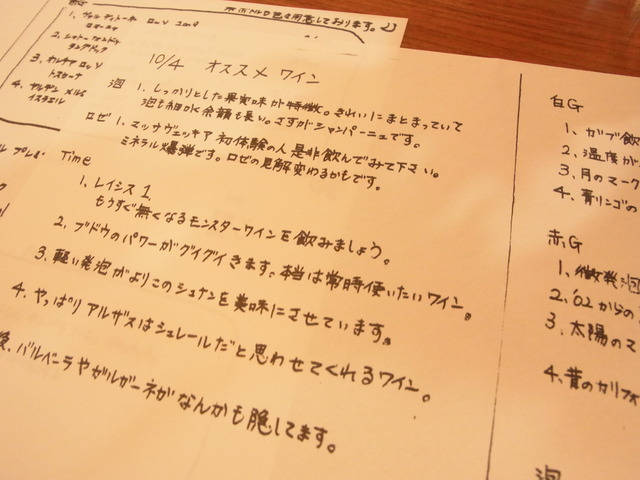 赤G
1、
ロッソ 2008
2、シャトー
ラングドック
3、 ロッソ
トスカーナ
4、ヤルデン メルロ
イスラエル
しております。
10/4 オススメ ワイン
泡 1、しっかりとした果実味が特徴。きれいにまとまっていて
泡も細かく余韻も長い。さすがシャンパーニュです。
ロゼ 1、マッサヴェッキア 初体験の人是非飲んでみて下さい。
ミネラル爆弾です。ロゼの見解変わるかもです。
Time
1、レイシス1
もうすぐ無くなるモンスターワインを飲みましょう。
2、ブドウのパワーがグイグイきます。本当は常時使いたいワイン。
3、軽い発泡がよりこのシュナンを美味にさせています。
4、やっぱり アルザスはシュレールだと思わせてくれるワイン。
後、バルベーラやガルガーネガなんかも隠してます。
白G
1、ガブ飲
2、温度が
3、月のマーク
4、青リンゴの
赤G
1、微発泡
2、'02からの
3、太陽のマ
4、昔のカリフォ
泡